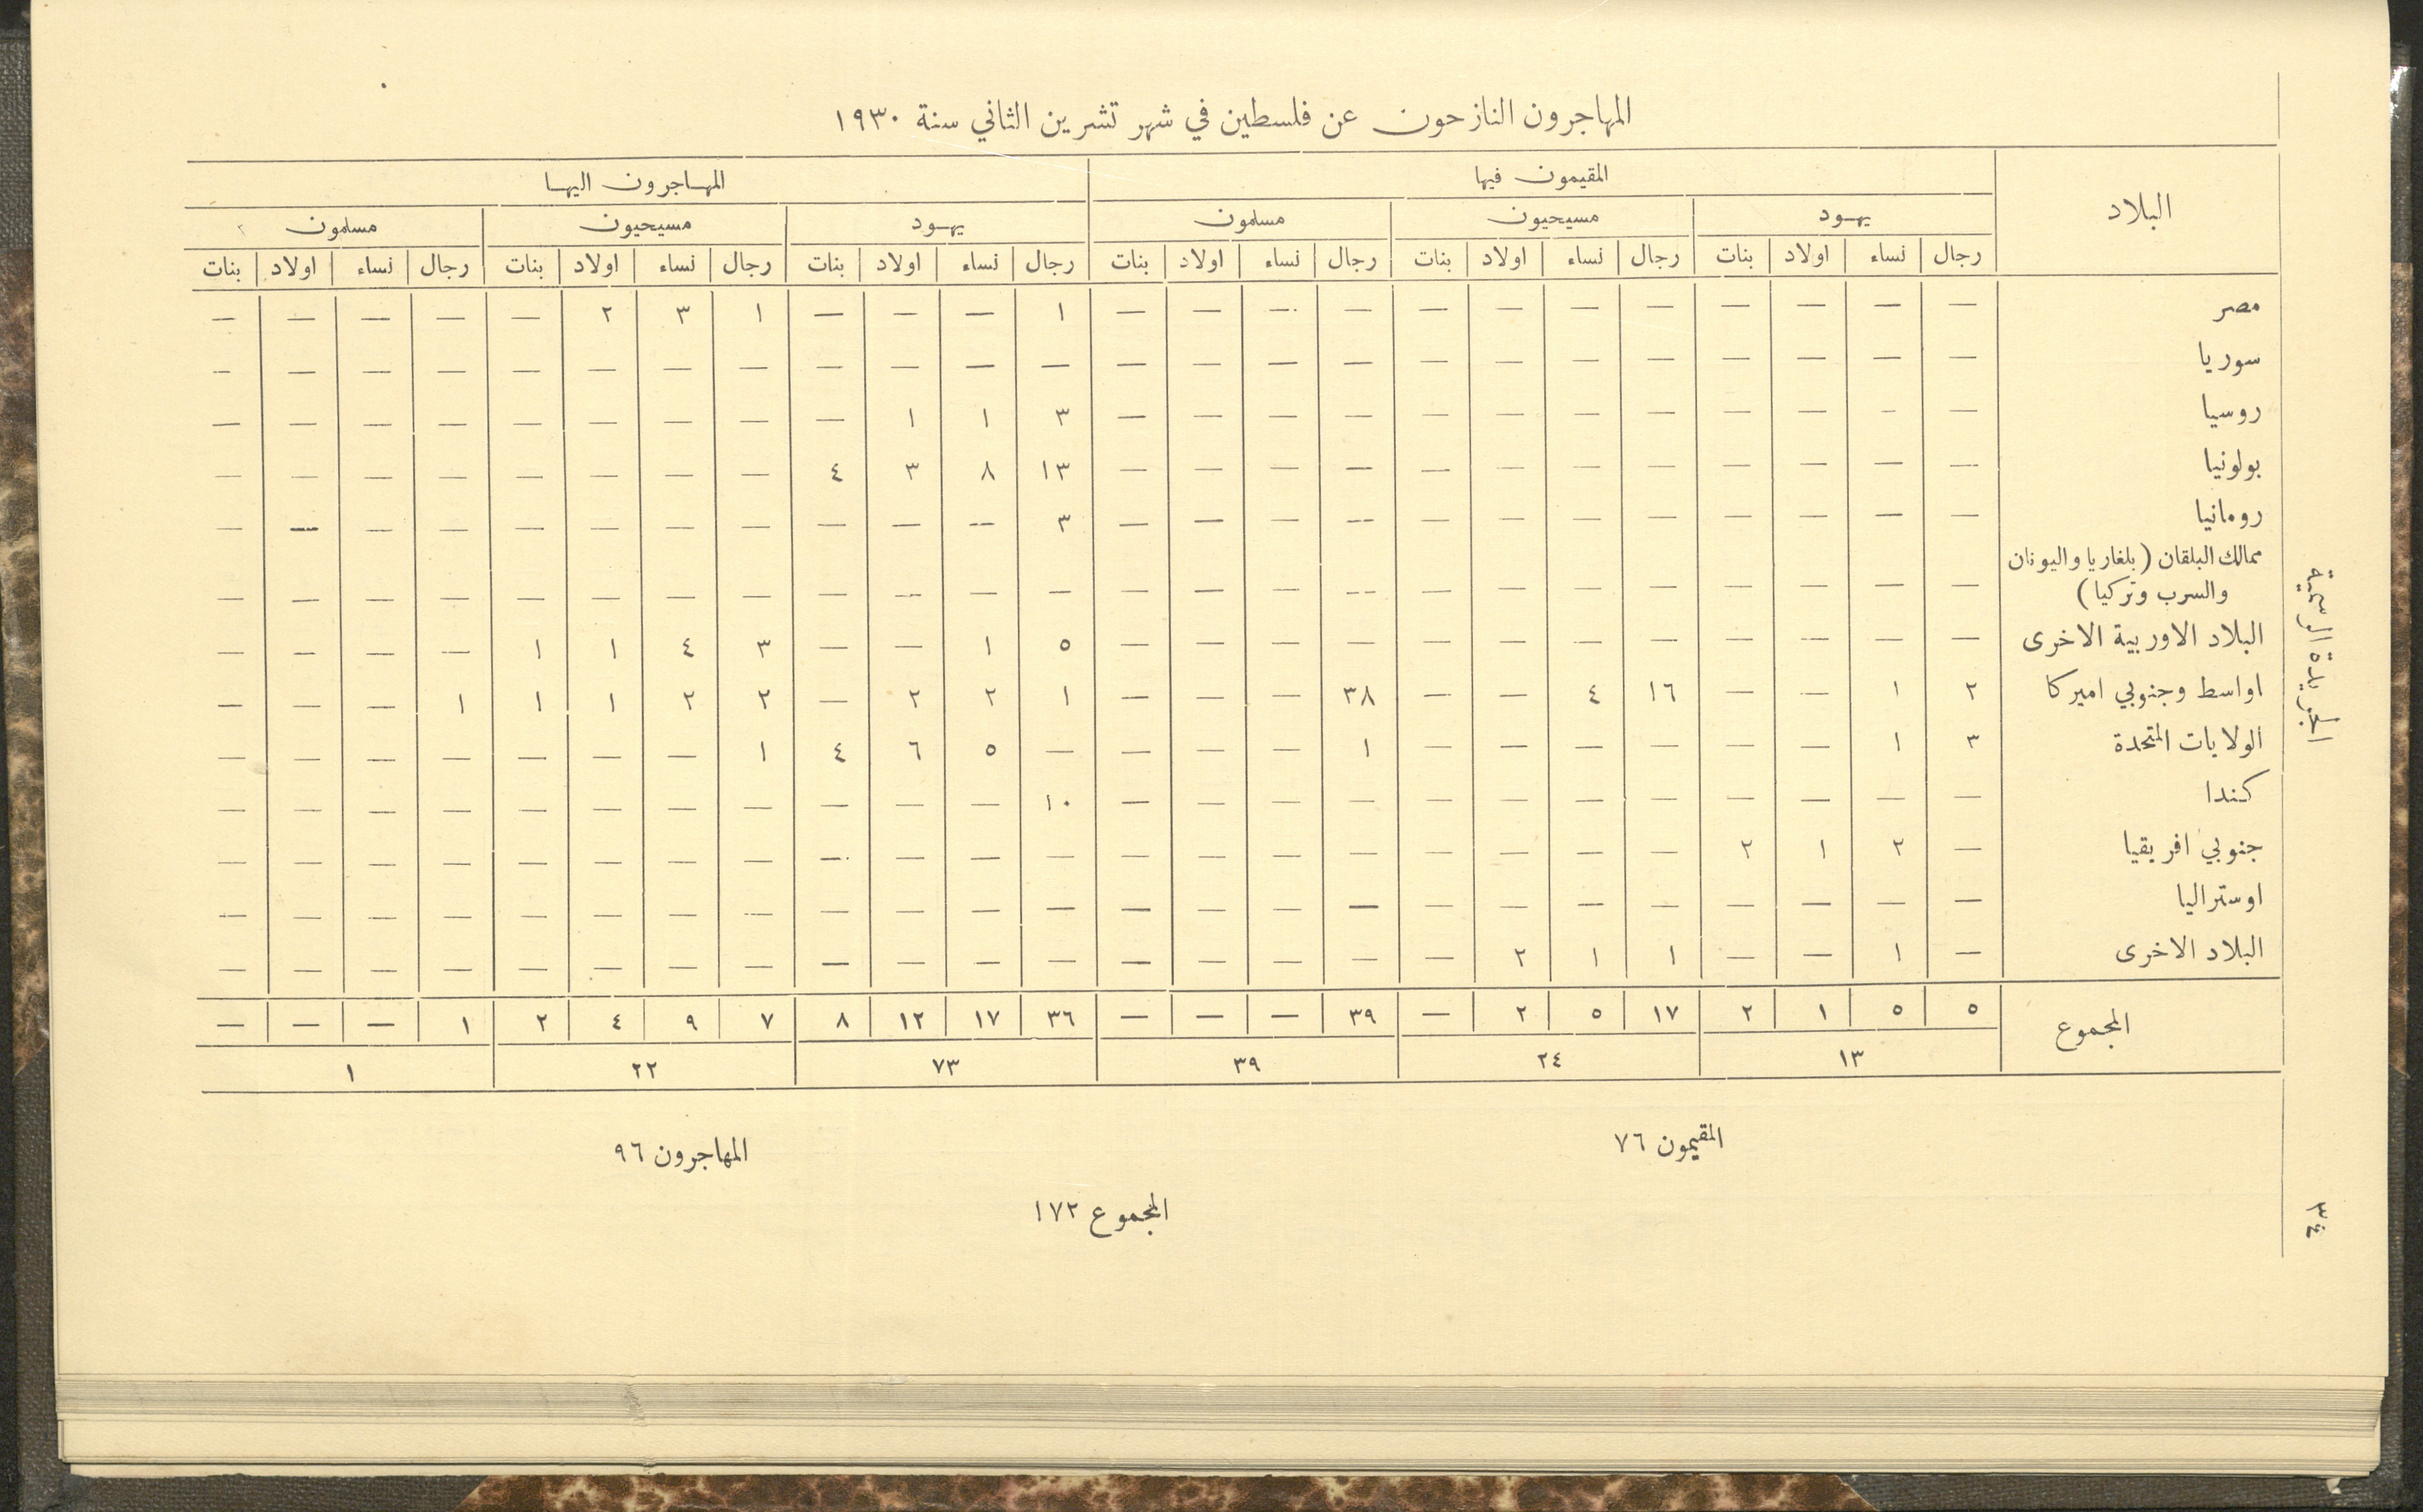 المهاجرون النازحون عن فلسطين في شهر تشرين الثاني سنة ١٩٣٠
البلاد | المقيمون فيها | المهاجرون اليها
يهود | مسيحيون | مسلمون | يهود | مسيحيون | مسلمون
رجال | نساء | اولاد | بنات | رجال | نساء | اولاد | بنات | رجال | نساء | اولاد | بنات | رجال | نساء | اولاد | بنات | رجال | نساء | اولاد | بنات | رجال | نساء | اولاد | بنات
مصر | — | — | — | — | — | — | — | — | — | — | — | — | ١ | — | — | — | ١ | ٣ | ٢ | — | — | — | — | —
سوريا | — | — | — | — | — | — | — | — | — | — | — | — | — | — | — | — | — | — | — | — | — | — | — | —
روسيا | — | — | — | — | — | — | — | — | — | — | — | — | ٣ | ١ | ١ | — | — | — | — | — | — | — | — | —
بولونيا | — | — | — | — | — | — | — | — | — | — | — | — | ١٣ | ٨ | ٣ | ٤ | — | — | — | — | — | — | — | —
رومانيا | — | — | — | — | — | — | — | — | — | — | — | — | ٣ | — | — | — | — | — | — | — | — | — | — | —
ممالك البلقان (بلغاريا واليونان
والسرب وتركيا) | — | — | — | — | — | — | — | — | — | — | — | — | — | — | — | — | — | — | — | — | — | — | — | —
البلاد الاوربية الاخرى | — | — | — | — | — | — | — | — | — | — | — | — | ٥ | ١ | — | — | ٣ | ٤ | ١ | ١ | — | — | — | —
اواسط وجنوبي اميركا | ٢ | ١ | — | — | ١٦ | ٤ | — | — | ٣٨ | — | — | — | ١ | ٢ | ٢ | — | ٢ | ٢ | ١ | ١ | ١ | — | — | —
الولايات المتحدة | ٣ | ١ | — | — | — | — | — | — | ١ | — | — | — | — | ٥ | ٦ | ٤ | ١ | — | — | — | — | — | — | —
كندا | — | — | — | — | — | — | — | — | — | — | — | — | ١٠ | — | — | — | — | — | — | — | — | — | — | —
جنوبي افريقيا | — | ٢ | ١ | ٢ | — | — | — | — | — | — | — | — | — | — | — | — | — | — | — | — | — | — | — | —
اوستراليا | — | — | — | — | — | — | — | — | — | — | — | — | — | — | — | — | — | — | — | — | — | — | — | —
البلاد الاخرى | — | ١ | — | — | ١ | ١ | ٢ | — | — | — | — | — | — | — | — | — | — | — | — | — | — | — | — | —
المجموع | ٥ | ٥ | ١ | ٢ | ١٧ | ٥ | ٢ | — | ٣٩ | — | — | — | ٣٦ | ١٧ | ١٢ | ٨ | ٧ | ٩ | ٤ | ٢ | ١ | — | — | —
١٣ | ٢٤ | ٣٩ | ٧٣ | ٢٢ | ١
المقيمون ٧٦
المهاجرون ٩٦
المجموع ١٧٢
الجريدة الرسمية
٣٤